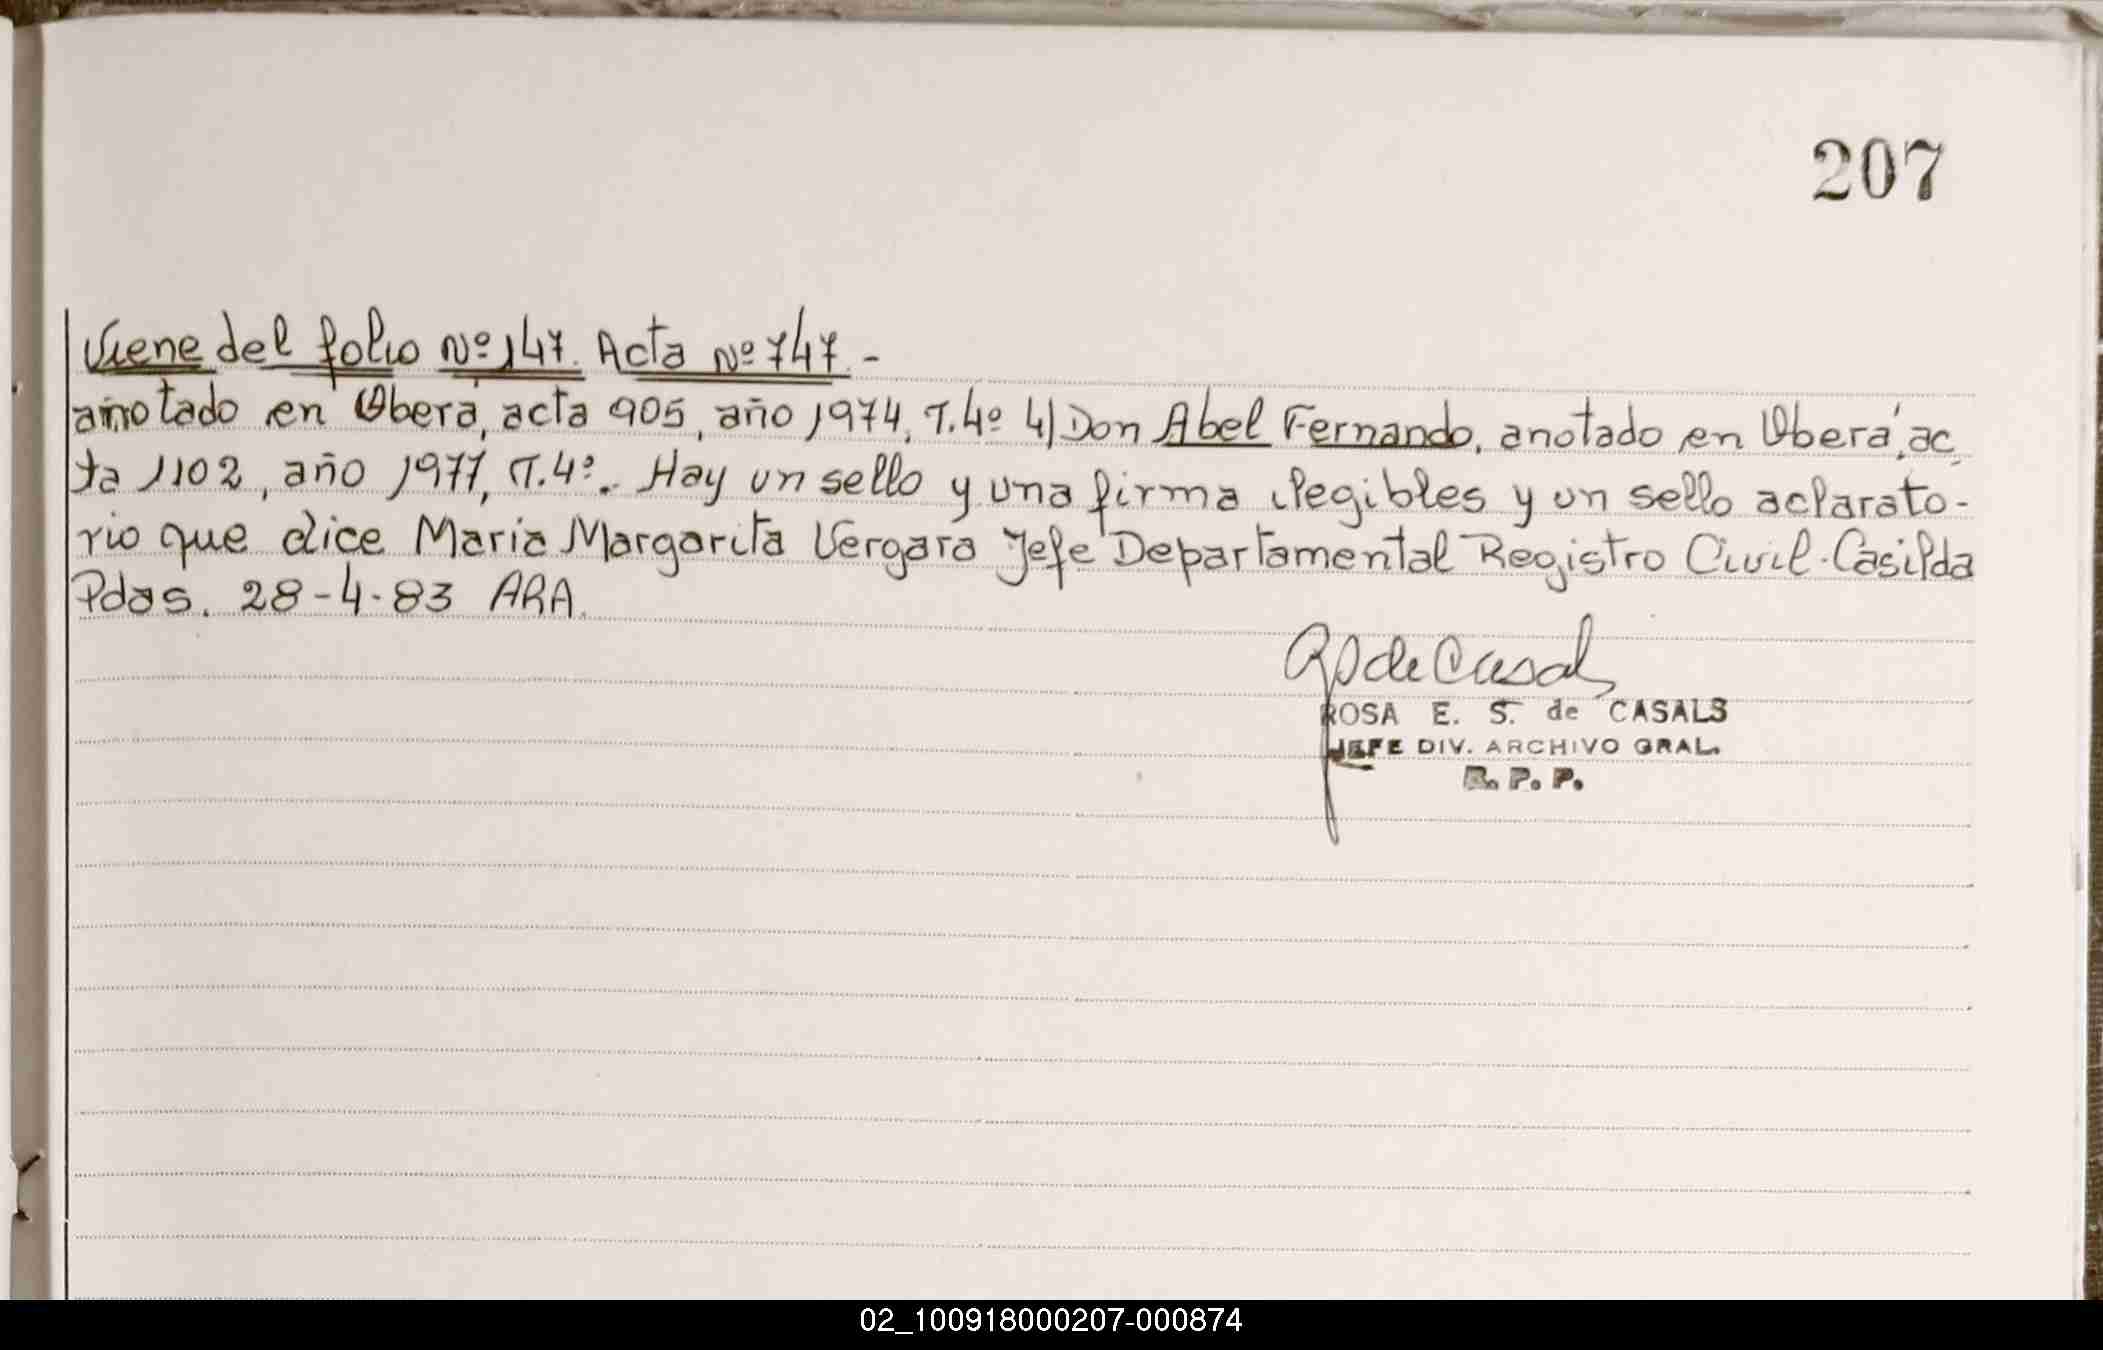 207
Viene del folio Nº 147. Acta Nº 747.-
anotado en Oberá, acta 905, año 1974, T.4º 4) Don Abel Fernando, anotado en Oberá, ac
ta 1102, año 1977, T.4º.. Hay un sello y una firma ilegibles y un sello aclarato-
rio que dice Maria Margarita Vergara Jefe Departamental Registro Civil-Casilda
Pdas. 28-4-83 ARA.
RS de Casals
ROSA E. S. de CASALS
JEFE DIV. ARCHIVO GRAL.
R. P. P.
02_100918000207-000874